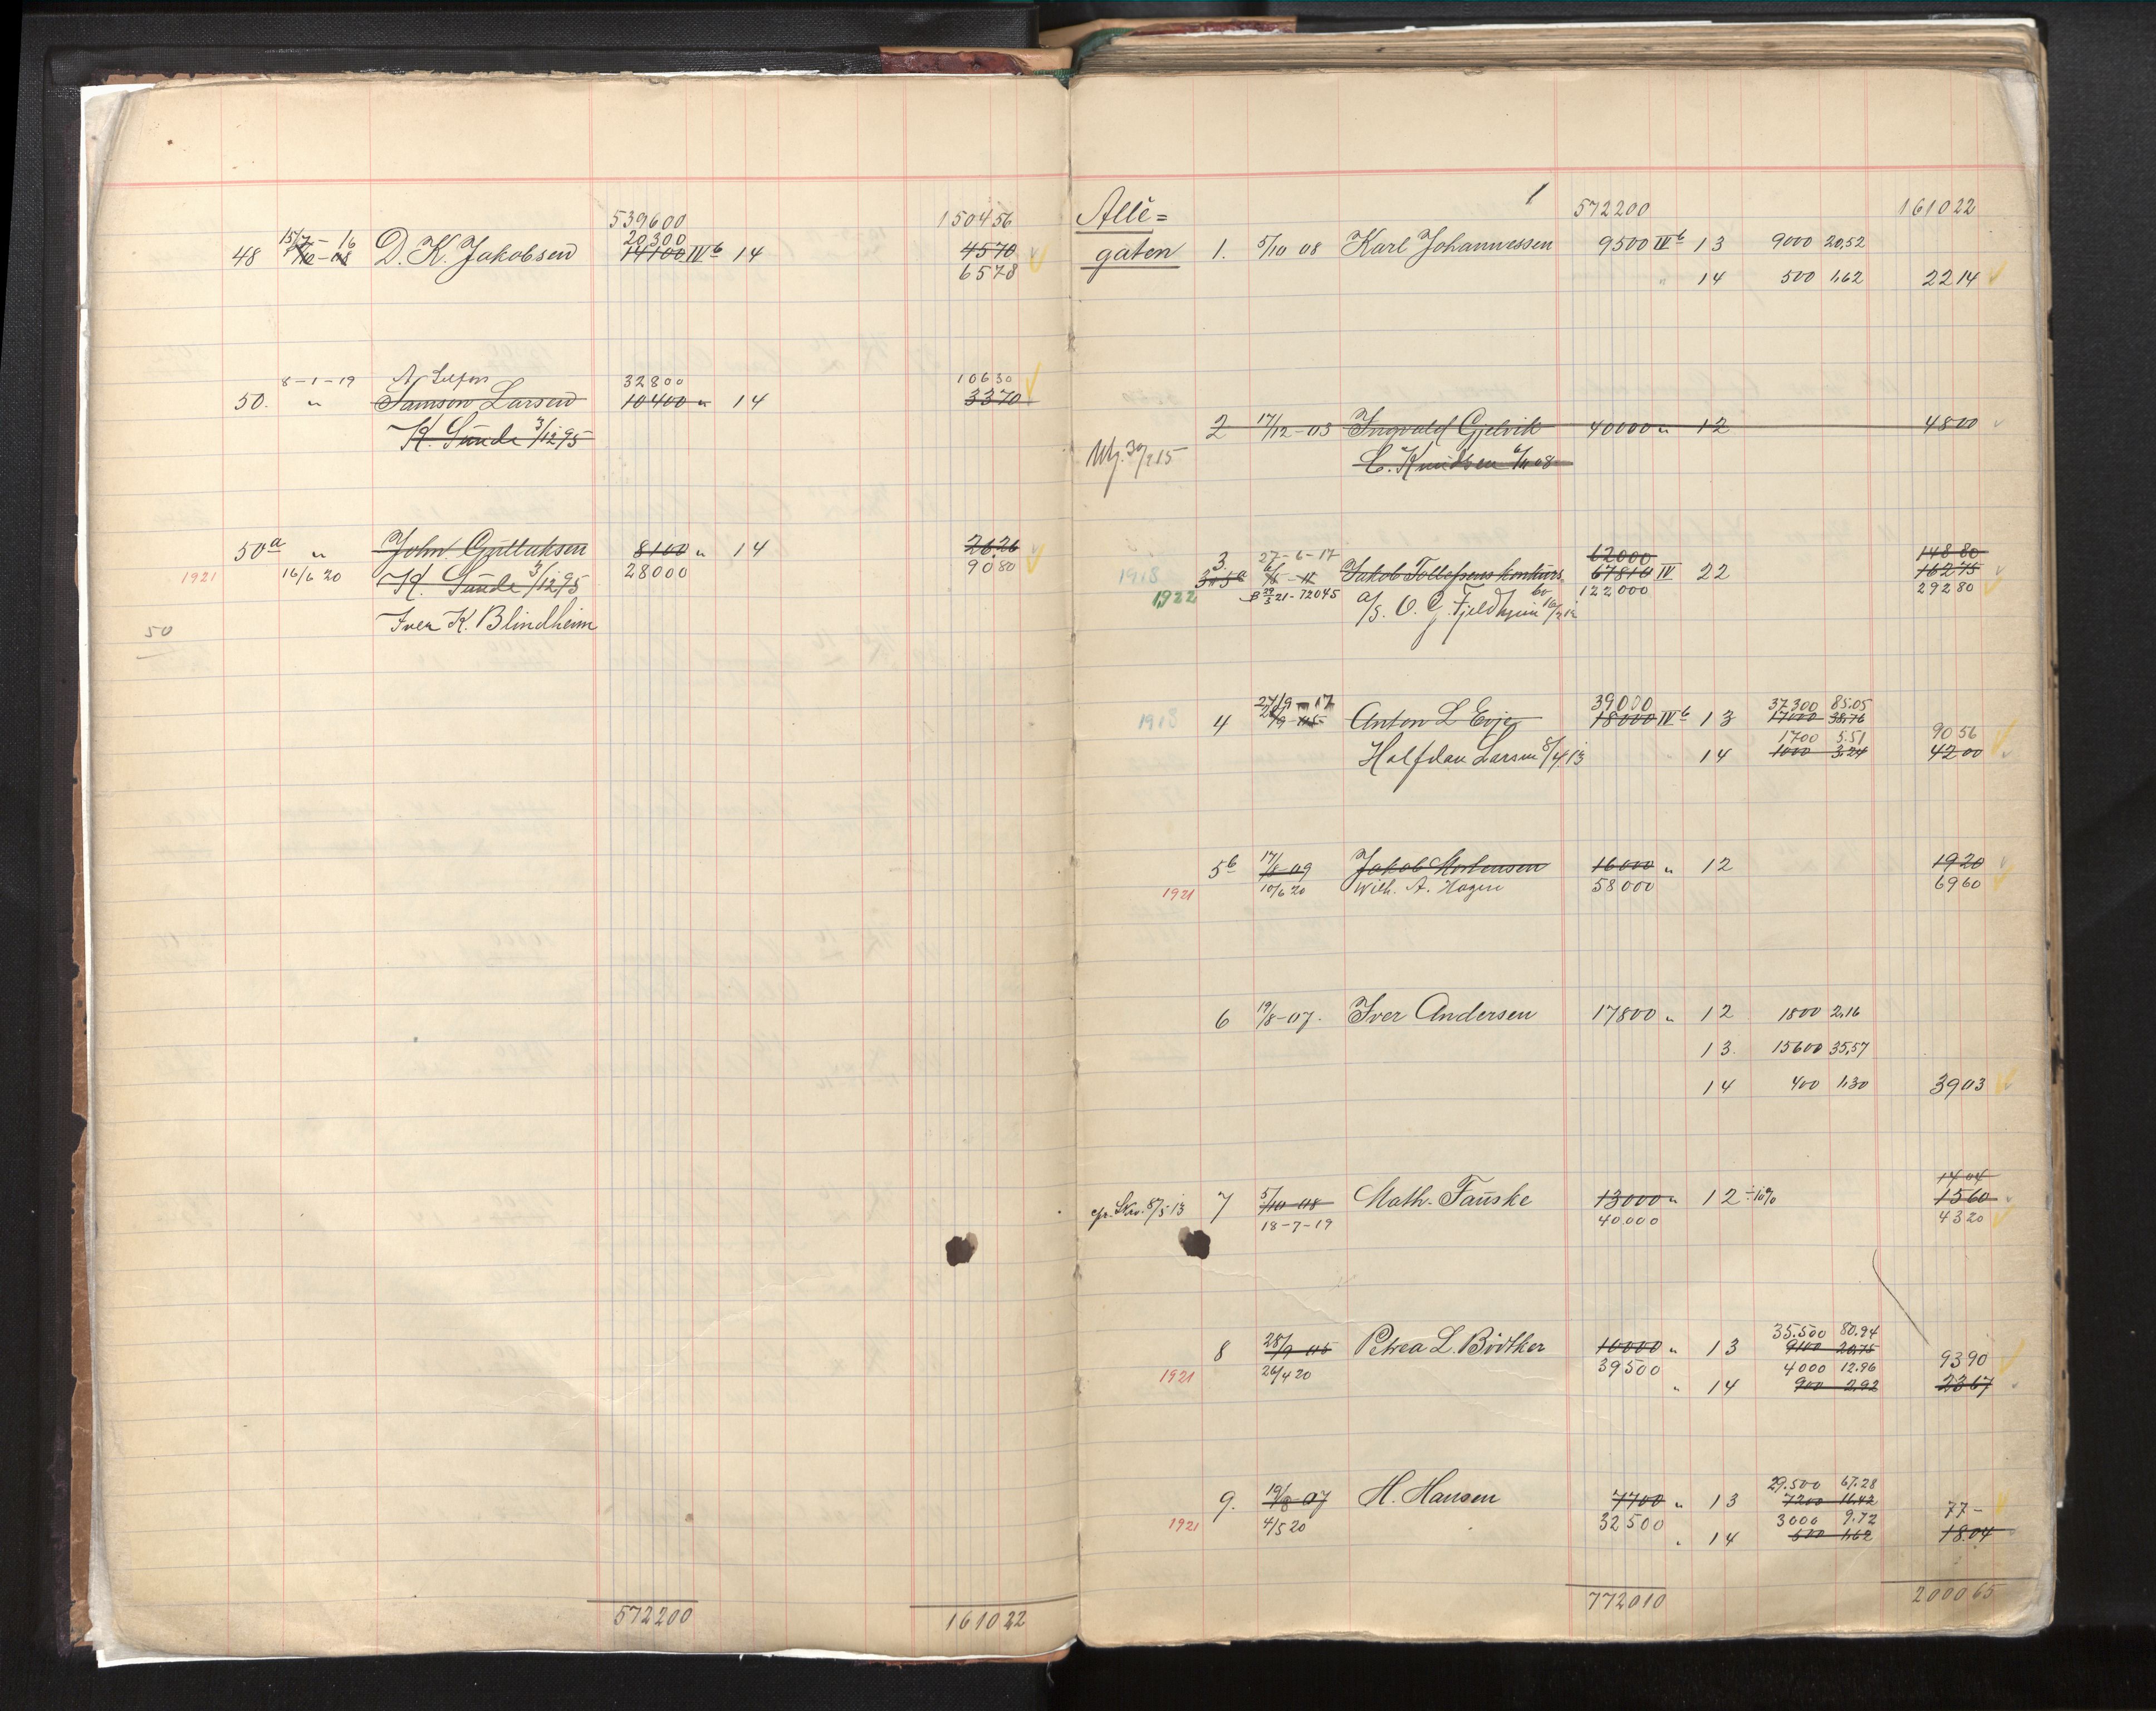 539600 150456
15/7 - 16 20300
48 D. K. Jakobsen 14100 IVb 14 4570
6578
8-1-19 32800 10630
50. " Samson Larsen 10400 " 14 3370
K. Sunde 3/12 95
50a " John Gulluksen 8100 " 14 2626
1921 16/6 20 K. Sunde 3/12 95 28000 9080
Iver K. Blindheim
50
572200 161022
1
Allè= 572200 161022
gaten 1. 5/10 08 Karl Johannessen 9500 IVb 13 9000 20,52
" 14 500 1,62 2214
2 17/12-03 Ingvald Gjelvik 40000 " 12 4800
C. Knudsen 6/11 08
3. 27-6-17 62000 14880
1918 3 & 5a Jakob Tollefsens konkurs bo 67810 IV 22 16275
1922 B 29/3 21-72045 A/S. O. G. Fjeldheim 122000 29280
27/9-17 39000 37300 85.05
1918 4 28/9-05 Anton L Evje 18000 IVb 13 17000 38,76
1700 5.51 9056
Halfdan Larsen 8/4 13 14 1000 3,24 4200
5b 17/8-09 Jakob Mortensen 16000 " 12 1920
1921 10/6 20 Wilh. A. Hagen 58000 6960
6 19/8-07. Iver Andersen 17800 " 12 1800 2,16
13. 15600 35,57
14 400 1,30 3903
1404
7 5/10-08 Math. Fauske 13000 " 12 ÷10% 1560
18-7-19 40.000 4320
35.500 80.94
8 28/9-05 Petrea L. Bödtker 10000 " 13 9100 20,75
1921 26/4 20 39500 4000 12.96 9390
" 14 900 2,92 2367
29.500 67.28
9. 19/8-07 H. Hansen 7700 " 13 7200 16,42
1921 4/5 20 32500 3000 9.72 77-
" 14 500 1,62 18.04
772010 200065